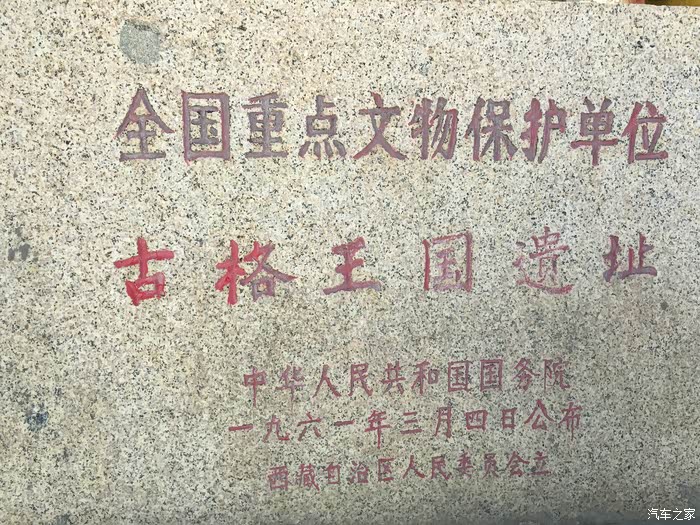 全国重点文物保护单位
古格王国遗址
中华人民共和国国务院
一九六一年三月四日公布
西藏自治区人民委员会立
汽车之家